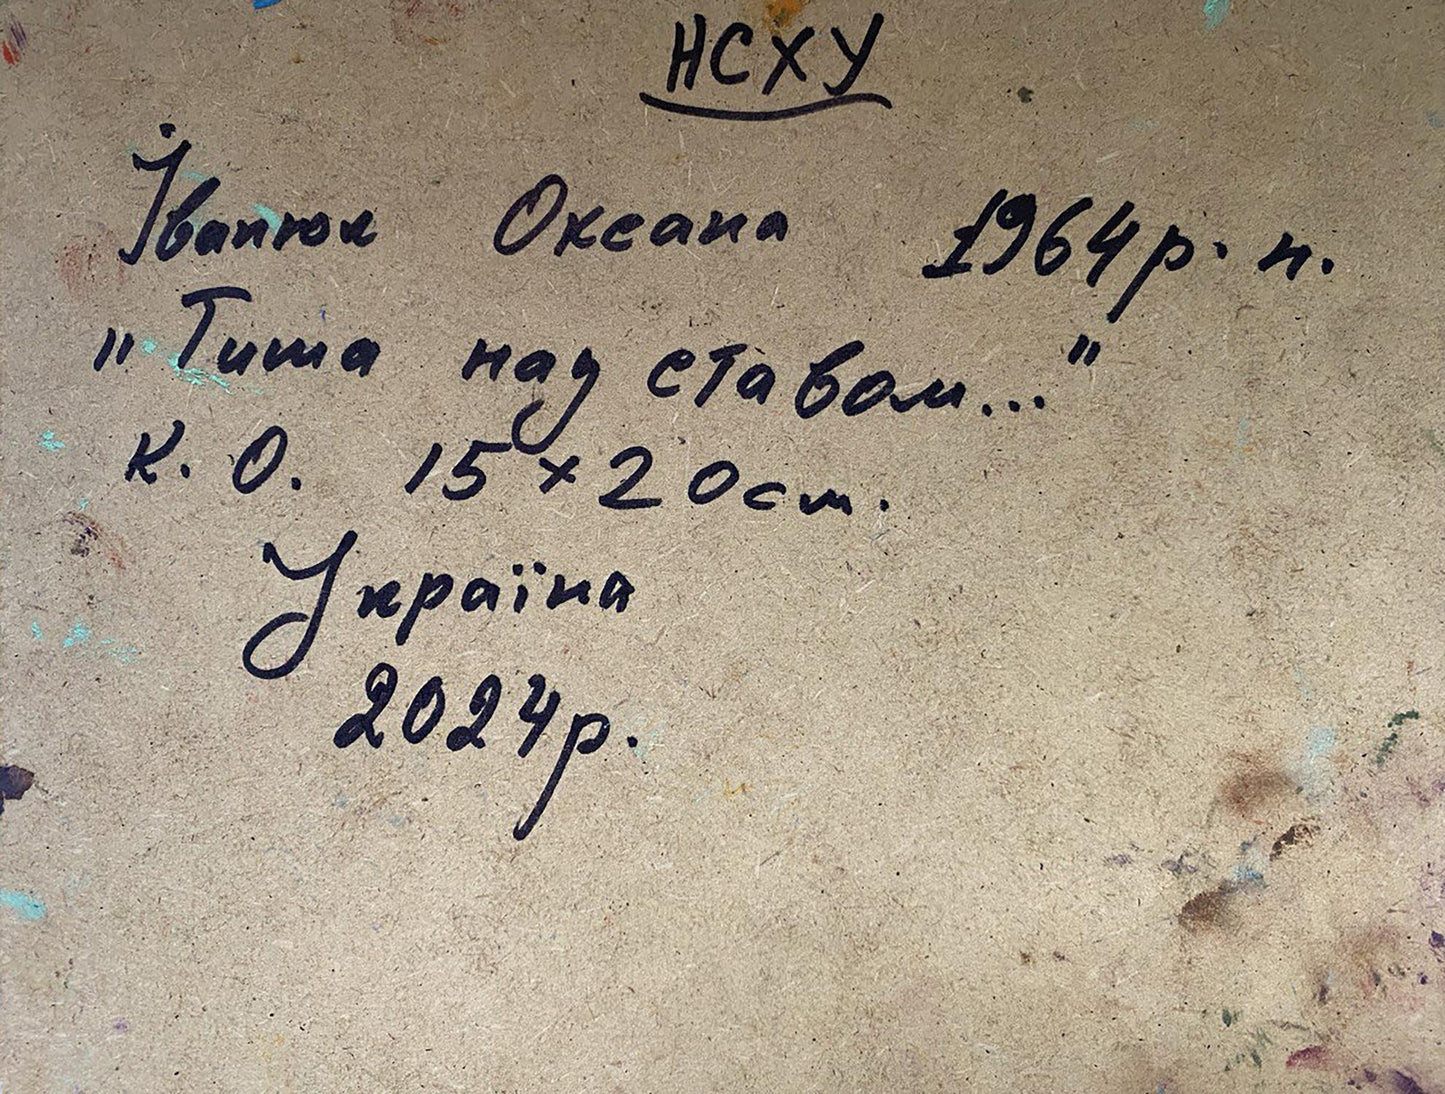 НСХУ
Іванюк Оксана 1964р. н.
„Тиша над ставом..."
К. О. 15×20см.
Україна
2024р.